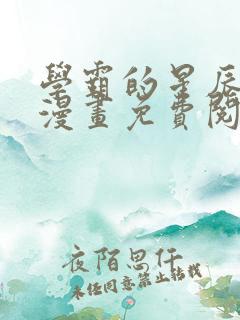 學霸的星辰
漫畫免費閱
夜陌思仟
未经同意禁止转载